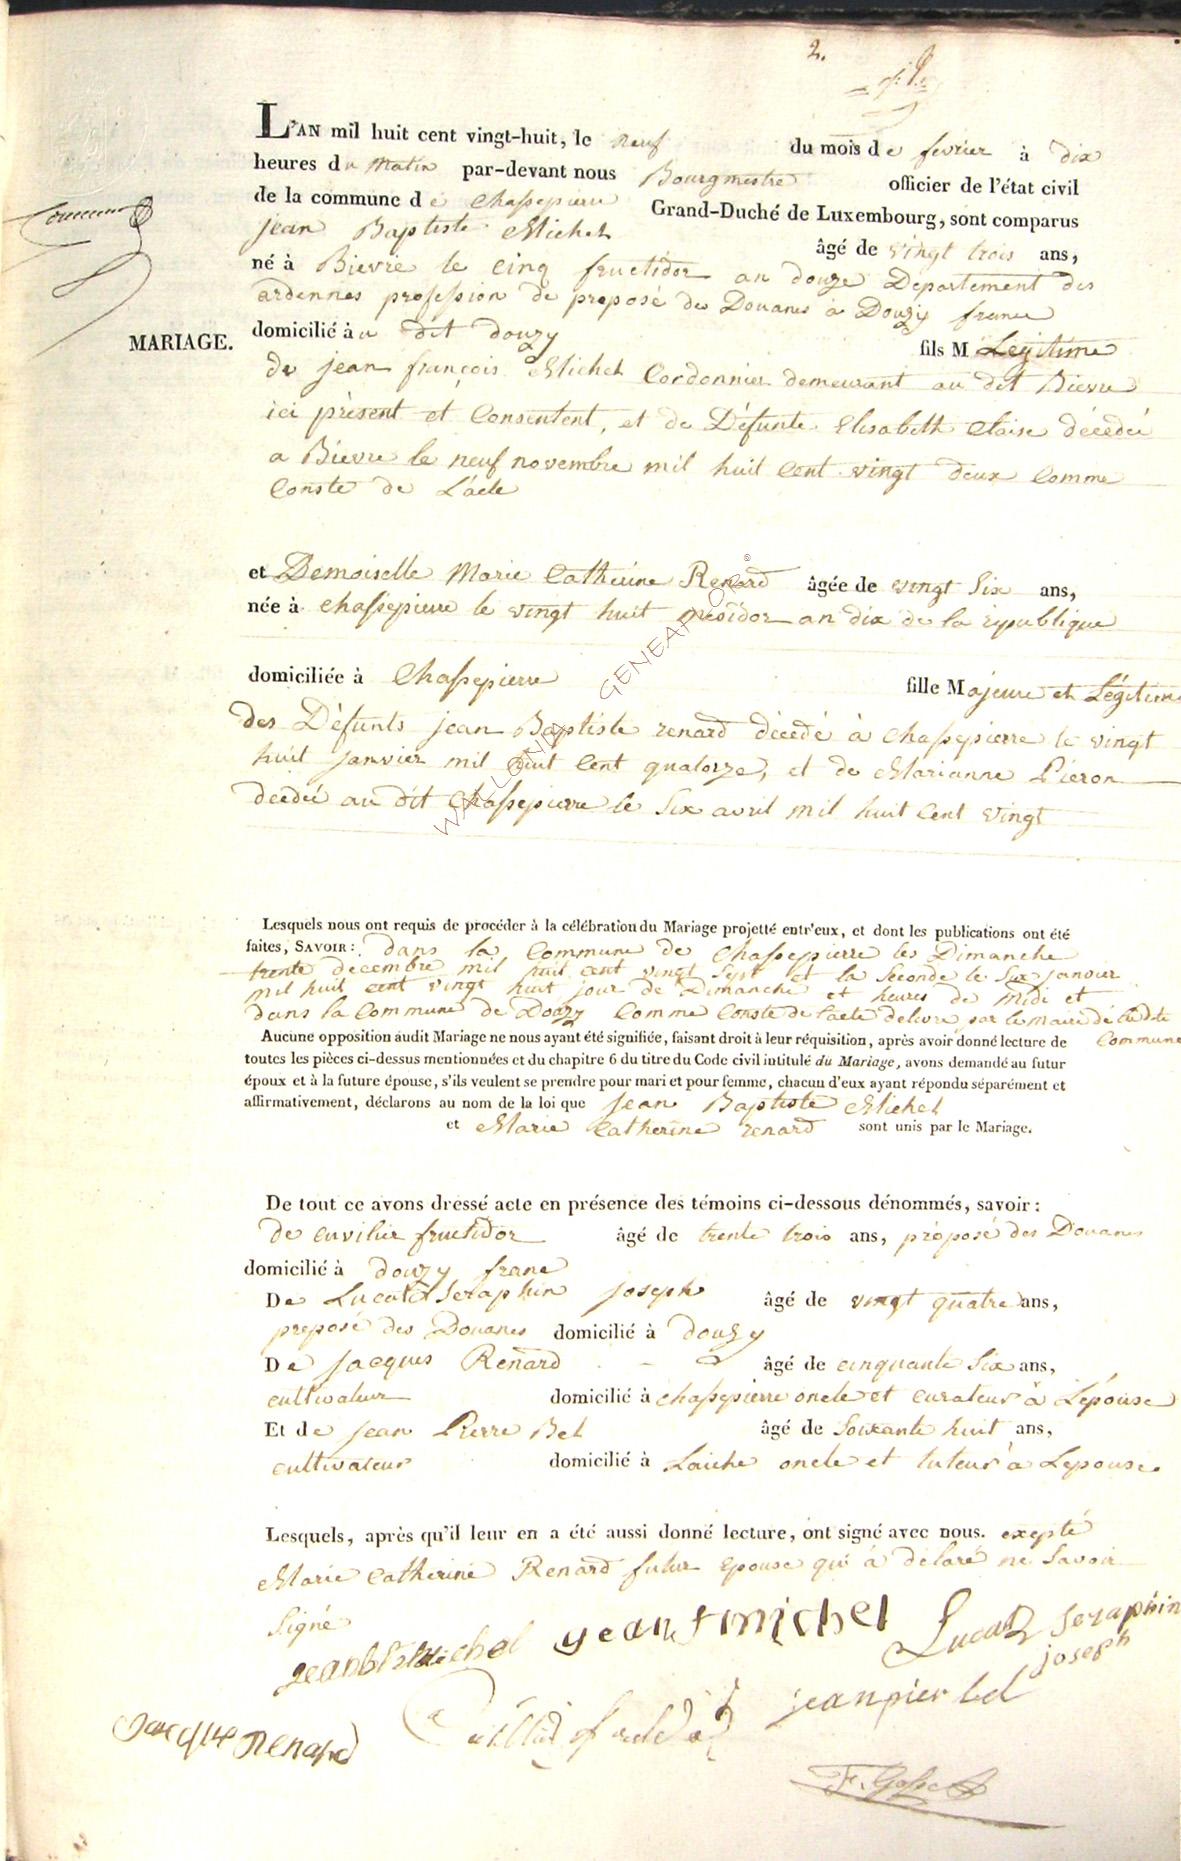 2.
L'AN mil huit cent vingt-huit, le neuf du mois de fevrier à dix
heures du Matin par-devant nous Bourgmestre officier de l'état civil
de la commune de Chassepierre Grand-Duché de Luxembourg, sont comparus
jean Baptiste Michel âgé de vingt trois ans,
né à Bievre le cinq fructidor an douze Departement des
ardennes profession de proposé des Douanes à Douzy france
domicilié à u dit douzy fils M Legitime
MARIAGE.
de jean françois Michel Cordonnier demeurant au dit Bievre
ici présent et Consentent, et de Défunte Elisabeth Claise décédée
a Bievre le neuf novembre mil huit Cent vingt deux Comme
Conste de L'acte
et Demoiselle Marie Catherine Renard âgée de vingt Six ans,
née à chassepierre le vingt huit an dix de la république
domiciliée à Chassepierre fille Majeure et Légitime
des Défunts jean Baptiste renard décédé à chassepierre le vingt
huit janvier mil huit Cent quatorze, et de Marianne Pieron
décédée au dit chassepierre le Six avril mil huit Cent vingt
WALLONIA GENEALOR ©
Lesquels nous ont requis de procéder à la célébration du Mariage projetté entr'eux, et dont les publications ont été
faites, SAVOIR: dans la Commune de Chassepierre les Dimanche
trente décembre mil huit cent vingt Sept et la Seconde le Six janvier
mil huit cent vingt huit jour de Dimanche et heures de Midi et
dans la Commune de Douzy Comme Conste de l'acte delivré par le maire de la dite
Commune
Aucune opposition audit Mariage ne nous ayant été signifiée, faisant droit à leur réquisition, après avoir donné lecture de
toutes les pièces ci-dessus mentionnées et du chapitre 6 du titre du Code civil intitulé du Mariage, avons demandé au futur
époux et à la future épouse, s'ils veulent se prendre pour mari et pour femme, chacun d'eux ayant répondu séparément et
affirmativement, déclarons au nom de la loi que jean Baptiste Michel
et Marie Catherine renard sont unis par le Mariage.
De tout ce avons dressé acte en présence des témoins ci-dessous dénommés, savoir:
de cuvilier fructidor âgé de trente trois ans, préposé des Douanes
domicilié à douzy france
De Lucatd Seraphin joseph âgé de vingt quatre ans,
preposé des Douanes domicilié à douzy
De jacques Renard âgé de cinquante Six ans,
cultivateur domicilié à chassepierre oncle et curateur à Lépouse
Et de jean Pierre Bel âgé de Soixante huit ans,
cultivateur domicilié à Laiche oncle et tuteur à Lepouse.
Lesquels, après qu'il leur en a été aussi donné lecture, ont signé avec nous. exepté
Marie Catherine Renard futur epouse qui à délaré ne Savoir
Signé
jeanbtste michel jean f michel Lucatd Seraphin
joseph
jeanpier bel
jacque Renard